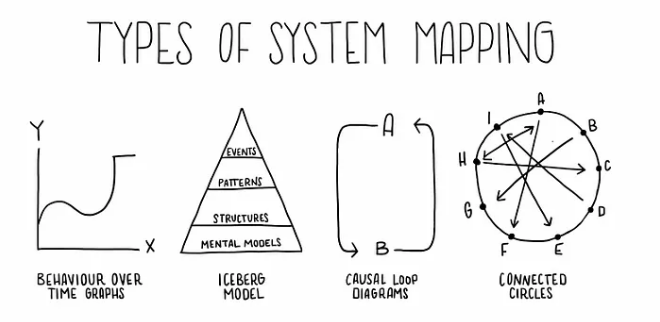 TYPES OF SYSTEM MAPPING
Y
X
BEHAVIOUR OVER
TIME GRAPHS
EVENTS
PATTERNS
STRUCTURES
MENTAL MODELS
ICEBERG
MODEL
A
B
CAUSAL LOOP
DIAGRAMS
A
B
C
D
E
F
G
H
I
CONNECTED
CIRCLES